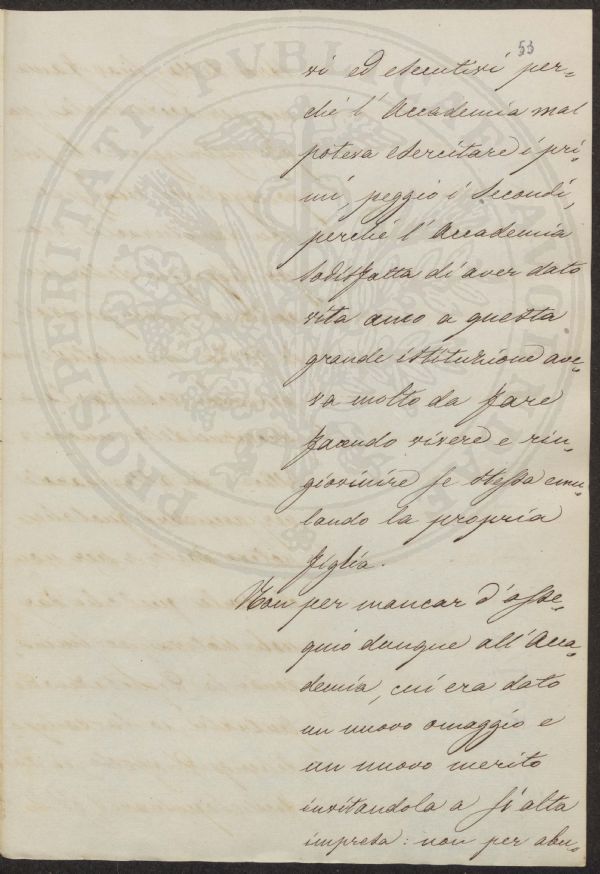 53
vi ed esecutivi per-
chè l'Accademia mal
poteva esercitare i pri-
mi, peggio i secondi,
perchè l'Accademia
sodisfatta di aver dato
vita anco a questa
grande istituzione ave-
va molto da fare
facendo vivere e rin-
giovinire se stessa emu-
lando la propria
figlia.
Non per mancar d'osse-
quio dunque all'Acca-
demia, cui era dato
un nuovo omaggio e
un nuovo merito
invitandola a sì alta
impresa: non per abu-
PROSPERITATI PUBLICAE AUGENDAE